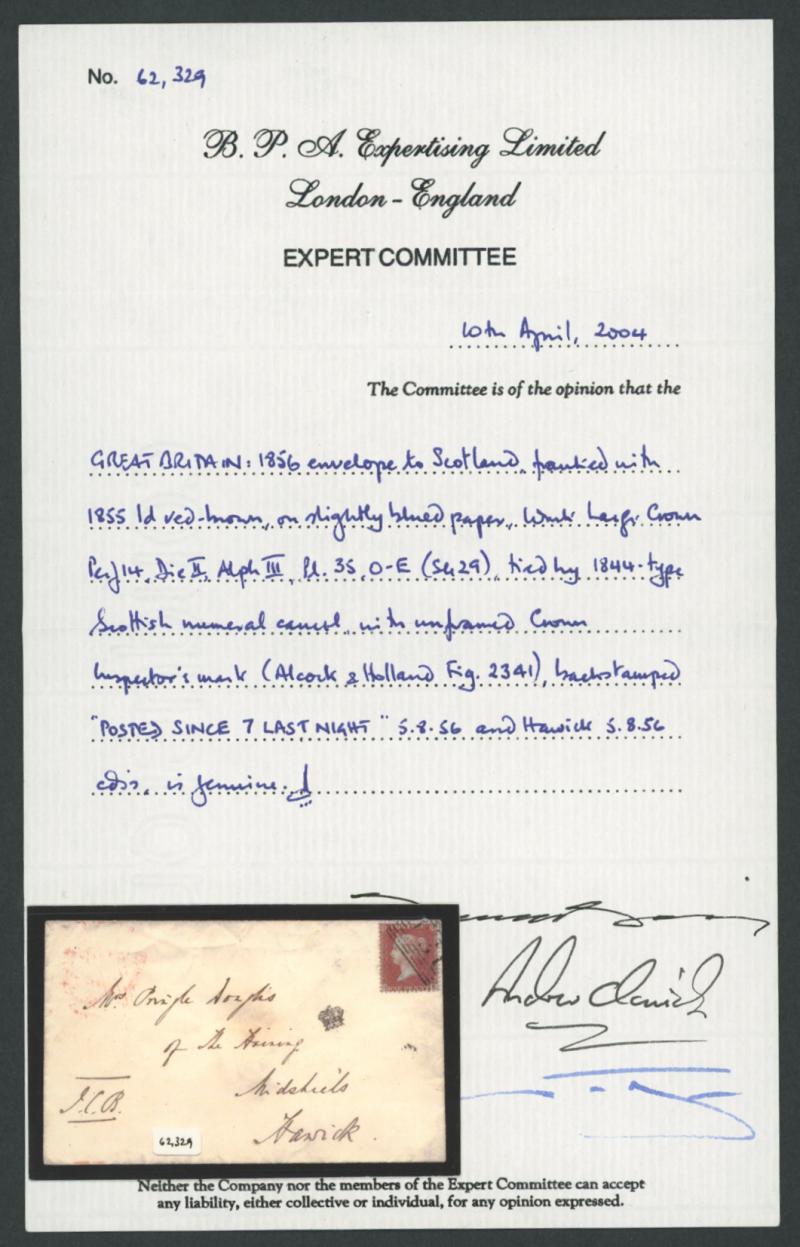 No. 62,329
B. P. A. Expertising Limited
London - England
EXPERT COMMITTEE
10th April, 2004
The Committee is of the opinion that the
GREAT BRITAIN: 1856 envelope to Scotland, franked with
1855 1d red-brown, on slightly blued paper, Wmk Large Crown
Perf 14, Die II, Alph III, Pl. 35, O-E (SG 29), tied by 1844-type
Scottish numeral cancel, with unframed Crown
Inspector's mark (Alcock & Holland Fig. 2341), backstamped
"POSTED SINCE 7 LAST NIGHT" 5.8.56 and Hawick 5.8.56
cdss, is genuine.
Andrew
Mrs Pringle Douglas
of the Haining
Midshiels
Hawick.
J.C.B.
62,329
Neither the Company nor the members of the Expert Committee can accept
any liability, either collective or individual, for any opinion expressed.